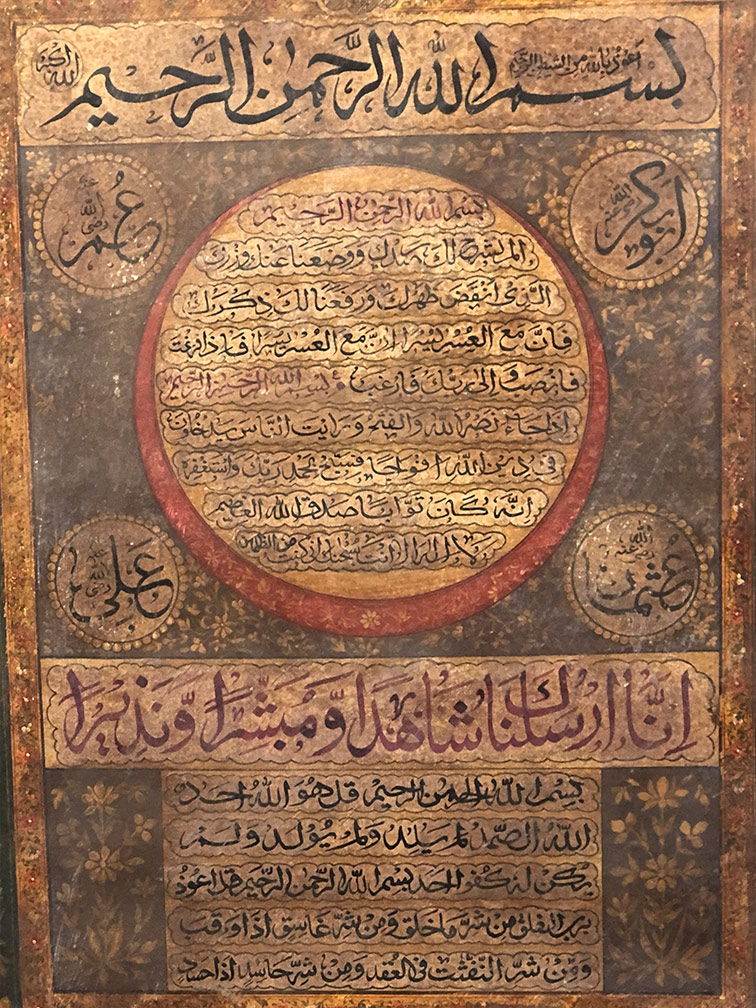 اعوذ بالله من الشيطان الرجيم
بسم الله الرحمن الرحيم
الله اكبر
ابو بكر رضي الله عنه
عُمر رضي الله عنه
بسم الله الرحمن الرحيم
الم نشرح لك صدرك ووضعنا عنك وزرك
الذى انقض ظهرك ورفعنا لك ذكرك
فان مع العسر يسرا ان مع العسر يسرا فاذا فرغت
فانصب والى ربك فارغب بسم الله الرحمن الرحيم
اذا جاء نصر الله والفتح ورايت الناس يدخلون
فى دين الله افواجا فسبح بحمد ربك واستغفره
انه كان توابا صدق الله العظيم
لا اله الا انت سبحنك انى كنت من الظالمين
عثمن رضي الله عنه
على رضي الله عنه
اِنَّا ارسلناك شاهدًا وَّمبشّرًا وَّنذيرًا
بسم الله الرحمن الرحيم قل هو الله احد
الله الصمد لم يلد ولم يولد ولم
يكن له كفوا احد بسم الله الرحمن الرحيم قل اعوذ
برب الفلق من شر ما خلق ومن شر غاسق اذا وقب
ومن شر النفثت فى العقد ومن شر حاسد اذا حسد